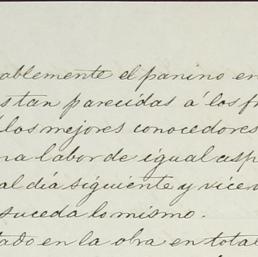 ablemente el panino en
stan parecidas á los fr
los mejores conocedores
na labor de igual asp
al dia siguiente y vicev
suceda lo mismo.
tado en la obra en total